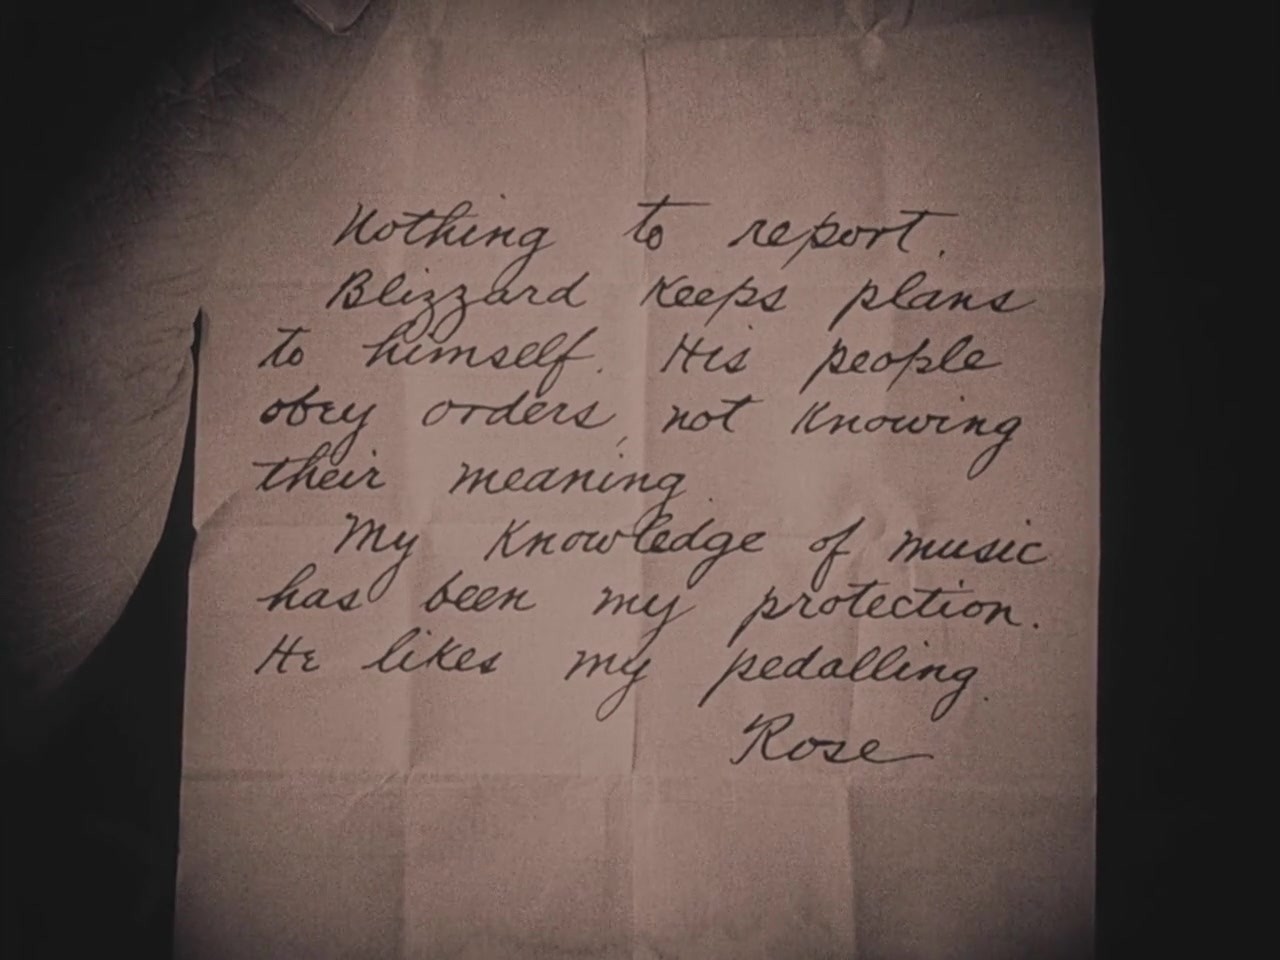 Nothing to report.
Blizzard keeps plans
to himself. His people
obey orders, not knowing
their meaning.
My knowledge of music
has been my protection.
He likes my pedalling.
Rose